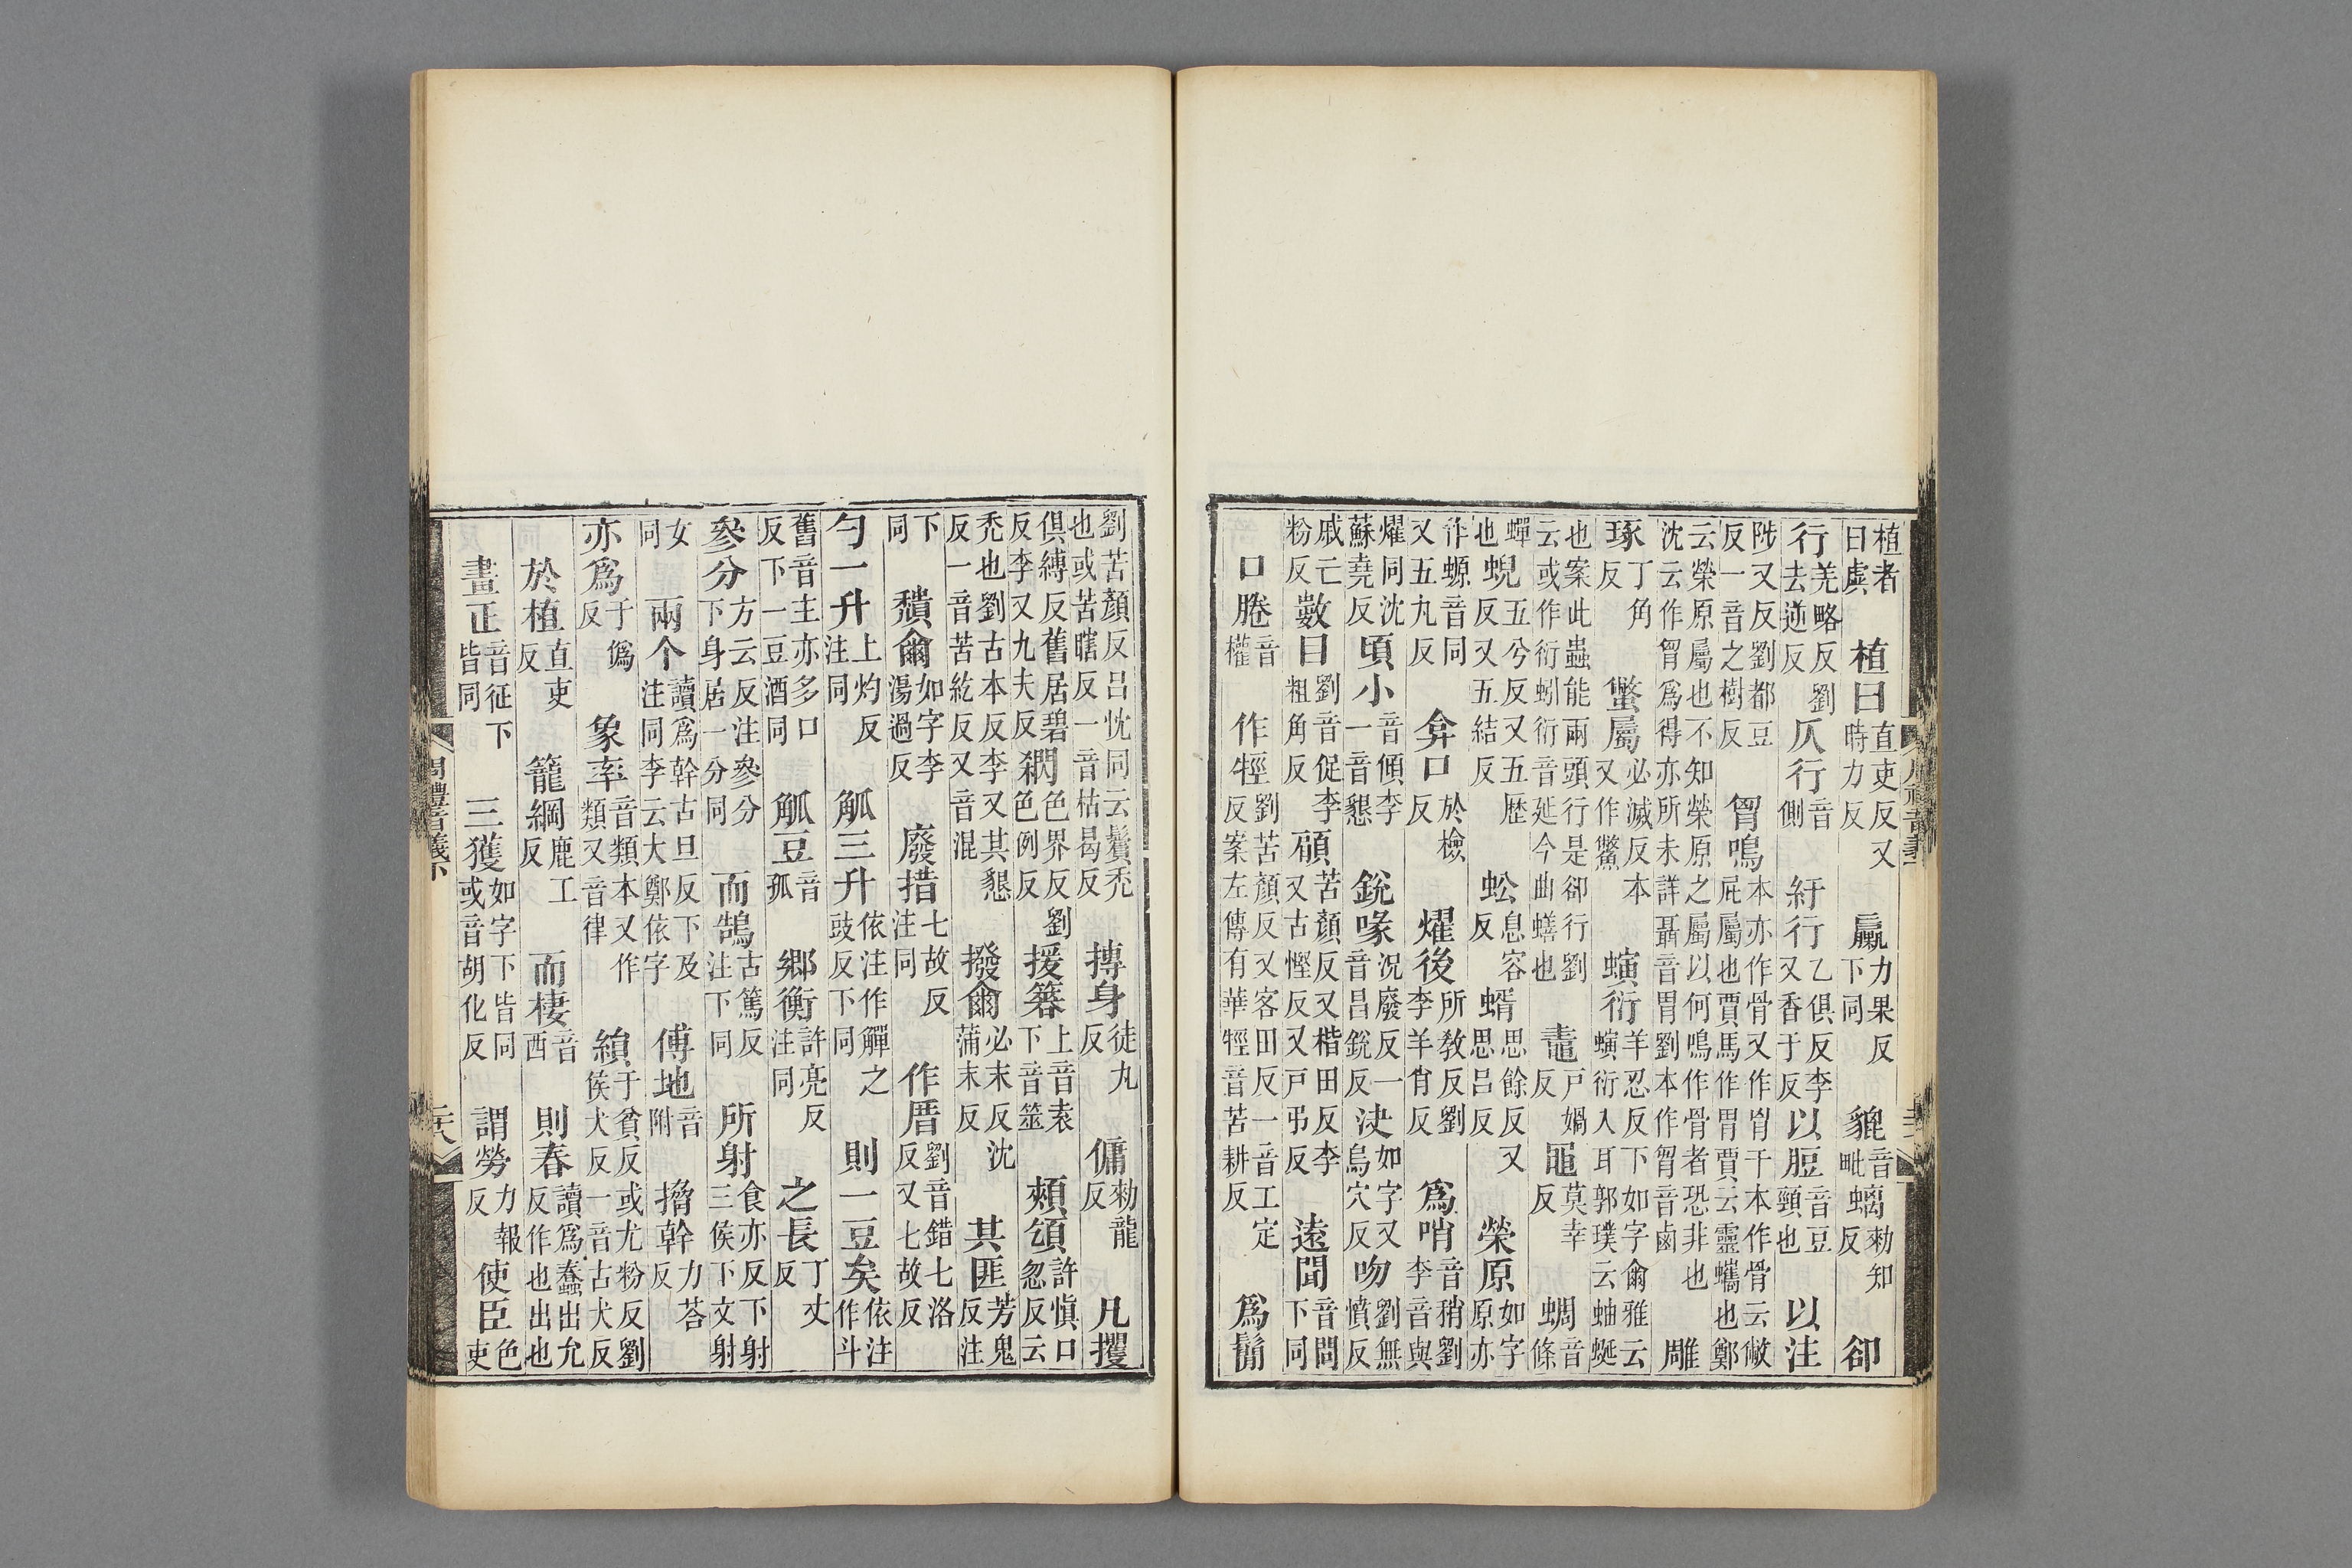 植者曰虡 植曰直吏反又時力反 臝力果反下同 貔音毗 螭勑知反 卻
行羌略反劉去逆反 仄行音側 紆行乙俱反李又香于反 以脰音豆頸也 以注
陟又反劉都豆反一音之樹反 胷鳴本亦作骨又作胃干本作骨云敝屁屬也賈馬作胃賈云靈蠵也鄭
云榮原屬也不知榮原之屬以何鳴作骨者恐非也沈云作胷爲得亦所未詳聶音胃劉本作胷音鹵 雕
琢丁角反 鱉屬必滅反本又作鱉 螾衍羊忍反下如字爾雅云螾衍入耳郭璞云蚰蜒
也案此蟲能兩頭行是卻行劉云或作衍蚓衍音延今曲蟮也 鼃戶媧反 黽莫幸反 蜩音條
蟬也 蜺五兮反又五歷反又五結反 蚣息容反 蝑思餘反又思呂反 榮原如字原亦
作螈音同又五九反 弇口於檢反 燿後所教反劉李羊肖反 爲哨音稍劉李音與
燿同沈蘇堯反 頃小音傾李一音懇 銳喙況廢反一音昌銳反 決如字又烏穴反 吻劉無憤反
戚亡粉反 數目劉音促李粗角反 顅苦顏反又楷田反李又古慳反又戶弔反 遠聞音問下同
口腃音權 作牼劉苦顏反又客田反一音工定反案左傳有華牼音苦耕反 爲鬜
劉苦顏反呂忱同云鬢禿也或苦瞎反一音枯曷反 摶身徒丸反 傭勑龍反 凡攫
俱縛反舊居碧反李又九夫反 閷色界反劉色例反 援簭上音袁下音筮 頰頷許愼口忽反云
禿也劉古本反李又其懇反一音苦紇反又音混 撥爾必末反沈蒲末反 其匪芳鬼反注
下同 穨爾如字李湯過反 廢措七故反注同 作厝劉音錯七洛反又七故反
勺一升上灼反注同 觚三升依注作觶之豉反下同 則一豆矣依注作斗
舊音主亦多口反下一豆酒同 觚豆音孤 鄉衡許亮反注同 之長丁丈反
參分方云反注參分下身居一分同 而鵠古篤反注下同 所射食亦反下射三侯下文射
女同 兩个讀爲幹古旦反下及注同李云大鄭依字 傅地音附 㨡幹力荅反
亦爲于僞反 象率音類本又作類又音律 縜于貧反或尤粉反劉侯犬反一音古犬反
於植直吏反 籠綱鹿工反 而棲音西 則春讀爲蠢出允反作也出也
畫正音征下皆同 三獲如字下皆同或音胡化反 謂勞力報反 使臣色吏
周禮音義下